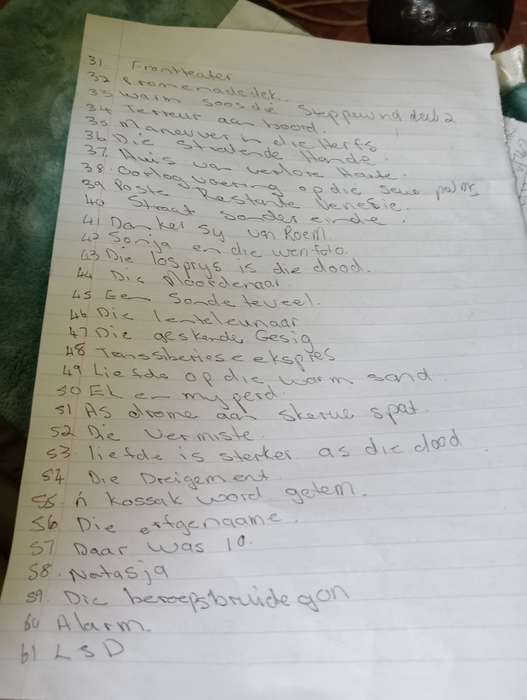 31 Frontteater
32 Promenadedek
33 Warm soos die Steppewind deel 2
34 Terreur aan boord.
35 Maneuver in die Herfs
36 Die Stralende Hande.
37 Huis van verlore Harte.
38 Oorlogvoering op die sewe
39 Poste Restante Venesie.
40 Straat sonder einde.
41 Donker sy van Roem.
42 Sonja en die wenfoto.
43 Die losprys is die dood.
44 Die Moordenaar.
45 Een Sonde teveel.
46 Die
47 Die geskende Gesig
48 Transsiberiese ekspres
49 Liefde op die warm sand
50 Ek en my perd.
51 As drome aan skerwe spat.
52 Die vermiste.
53 liefde is sterker as die dood
54 Die Dreigement.
55 ń kossak word getem.
56 Die erfgename.
57 Daar was 10.
58. Natasja
59. Die beroepsbruidegon
60 Alarm.
61 LSD